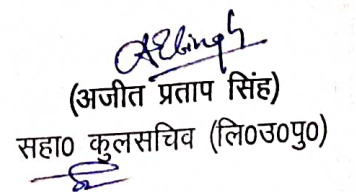 (अजीत प्रताप सिंह)
सहा० कुलसचिव (लि०उ०पु०)